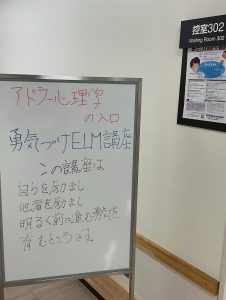 アドラー心理学
の入口
勇気づけELM講座
この講座は
自らを励まし
他者を励まし
明るく前に進む勇気を
育むところです。
控室302
Waiting Room 302